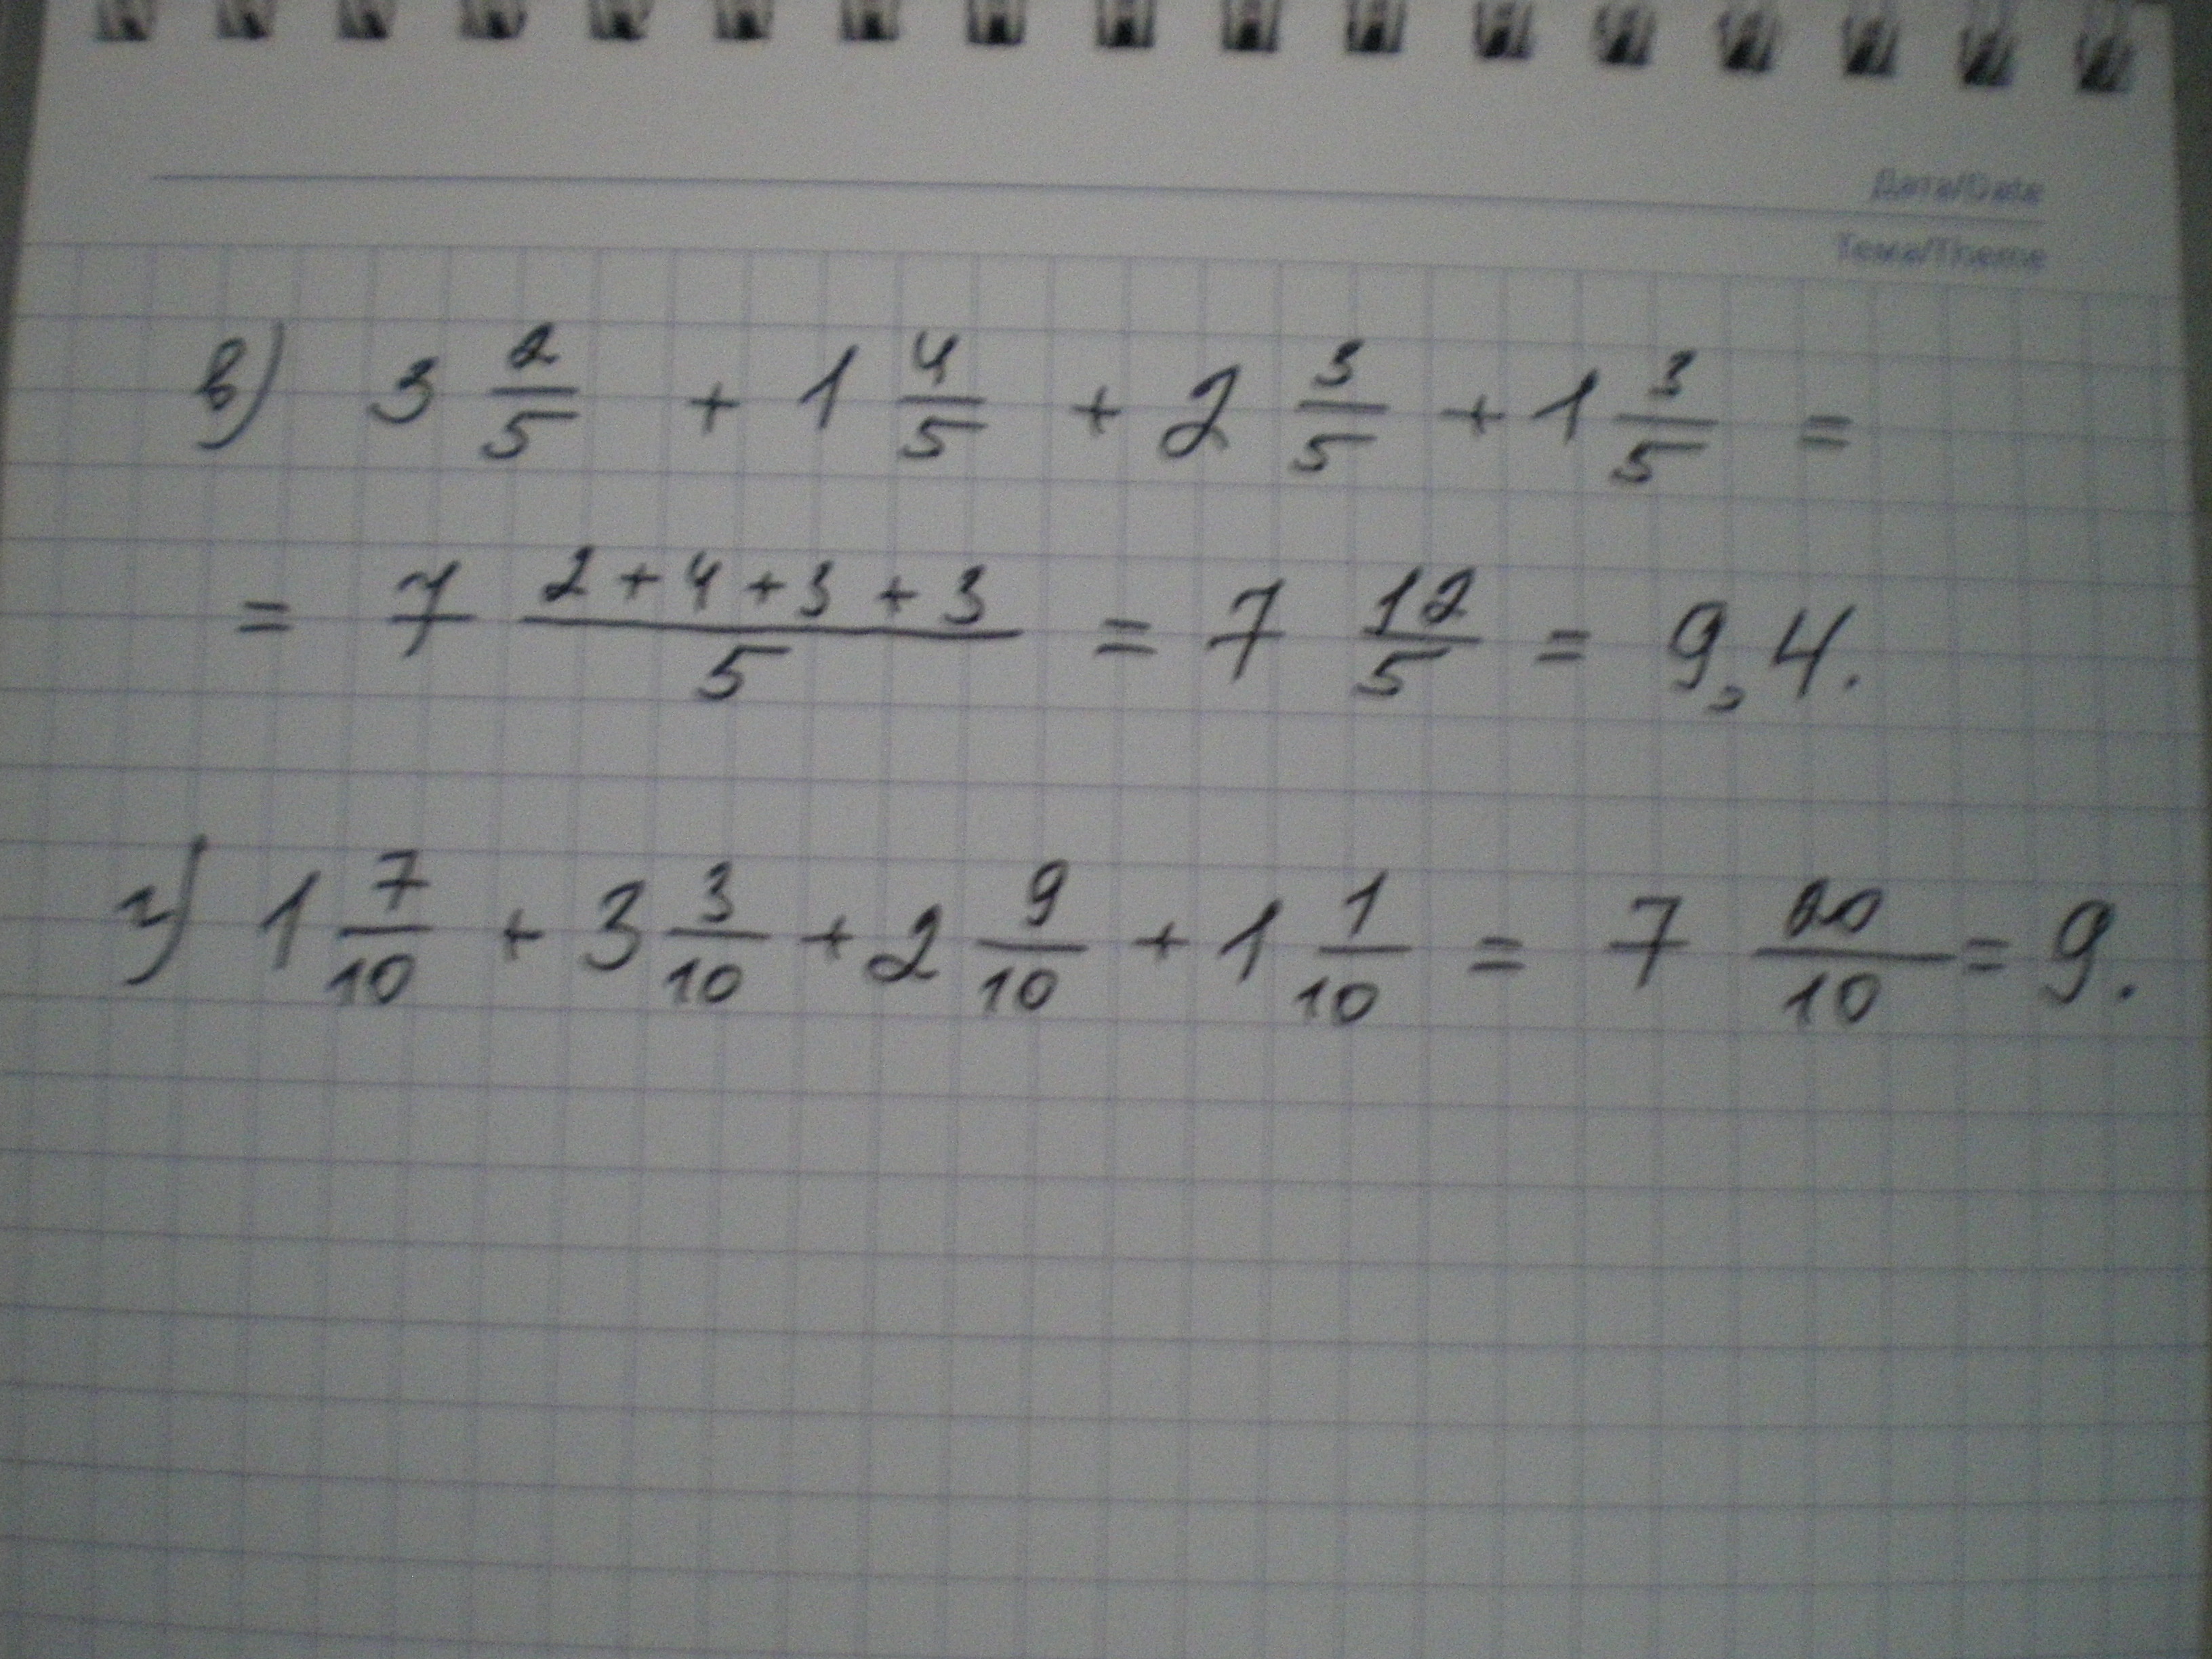 Дата/Date
Тема/Theme
в) 3 2/5 + 1 4/5 + 2 3/5 + 1 3/5 =
= 7 (2+4+3+3)/5 = 7 12/5 = 9,4.
г) 1 7/10 + 3 3/10 + 2 9/10 + 1 1/10 = 7 20/10 = 9.